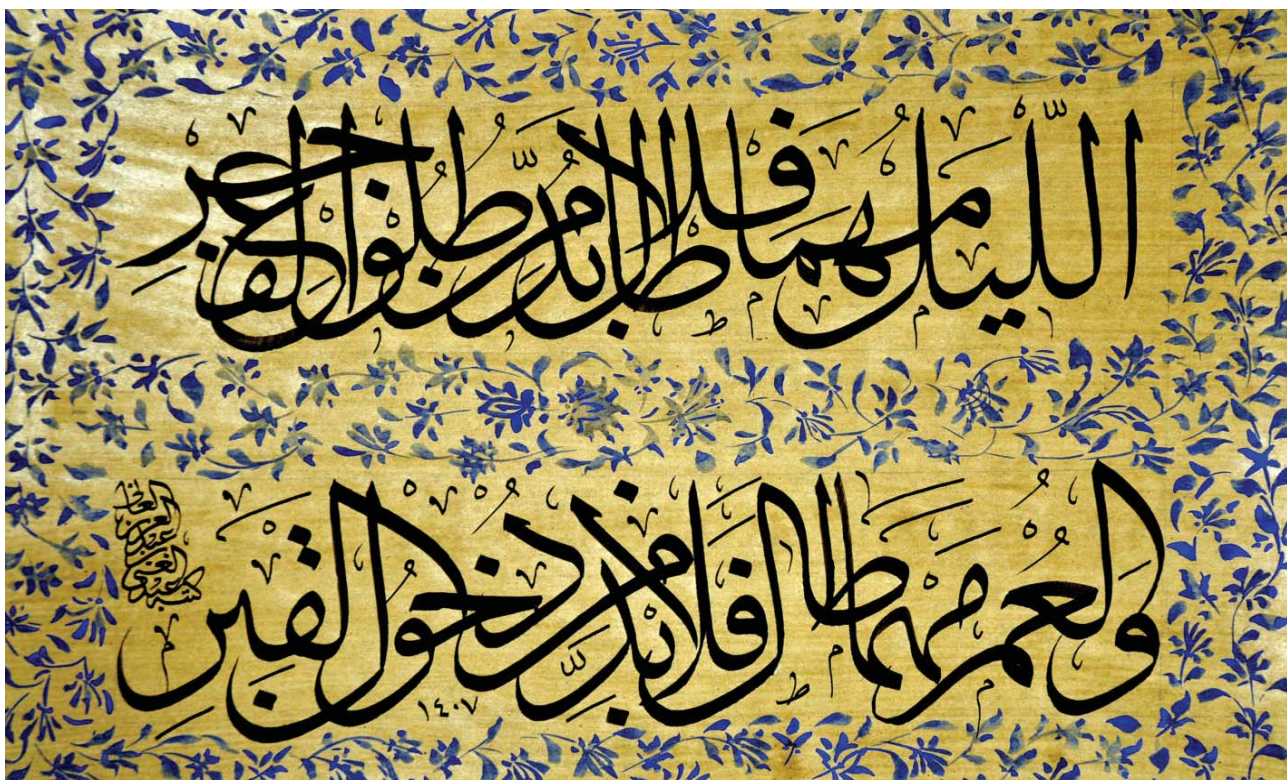 الليل مهما طال فلا بد من طلوع الفجر
والعمر مهما طال فلا بد من دخول القبر
١٤٠٧